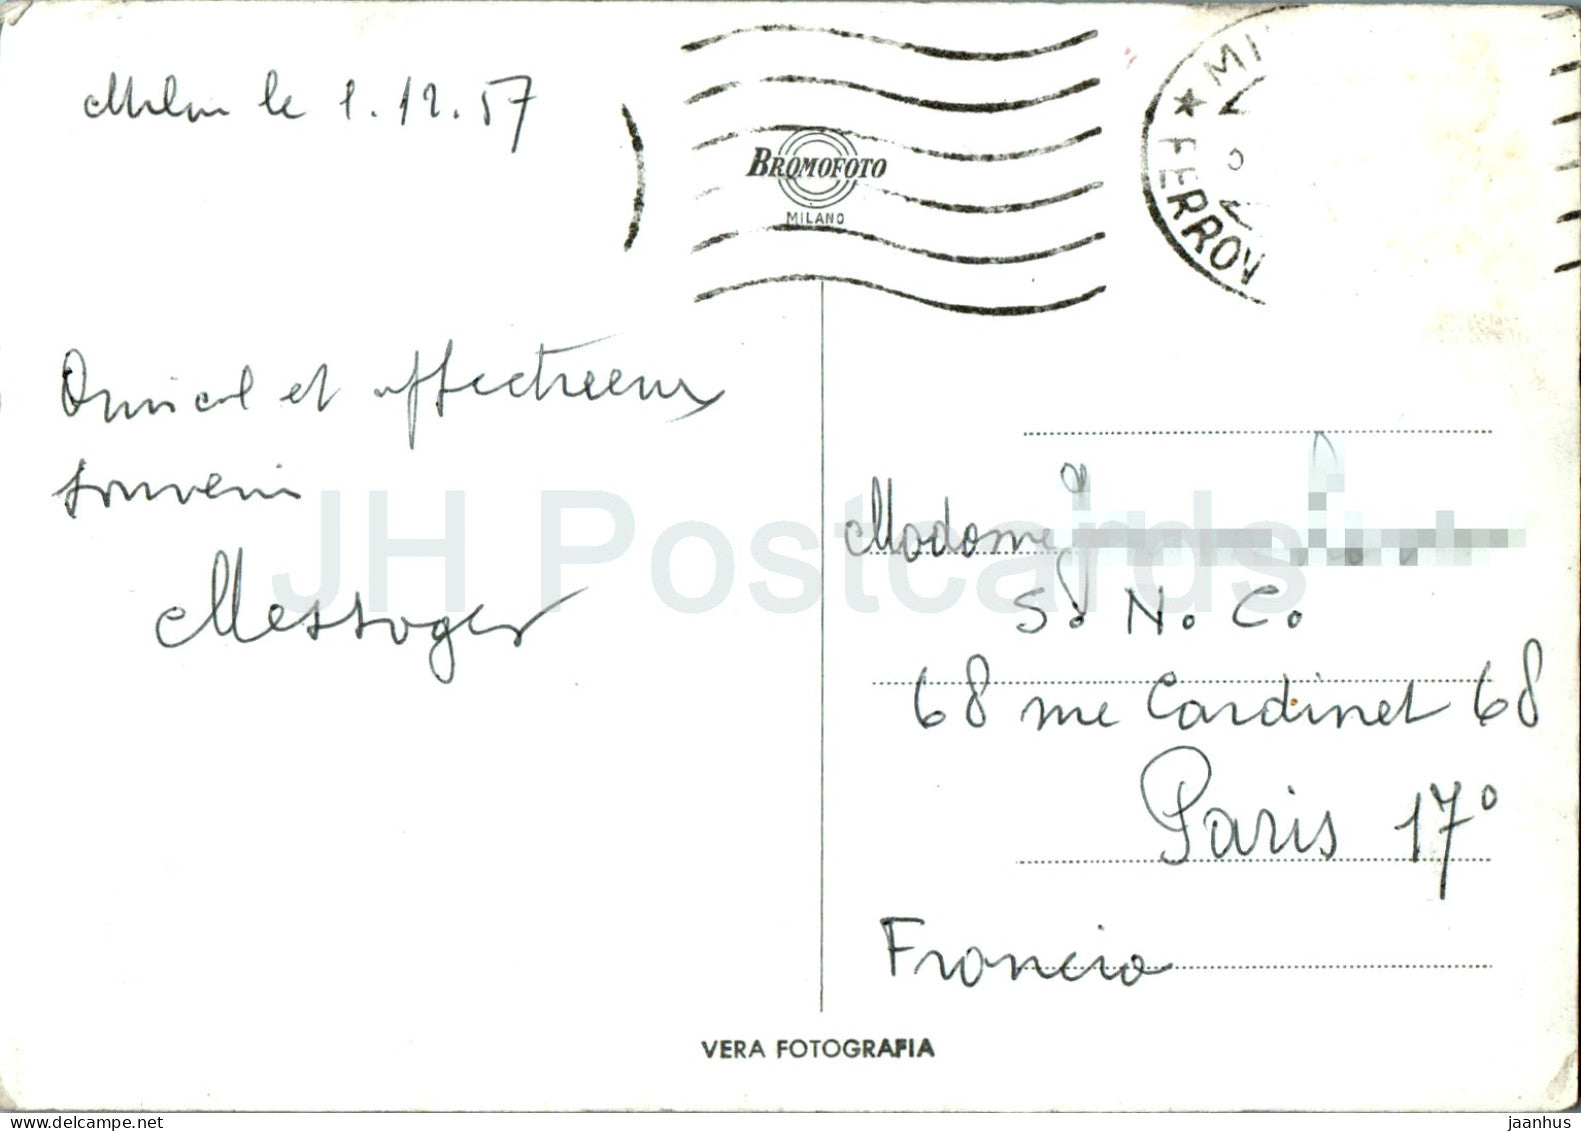 Milan le 1.12.57
BROMOFOTO
MILANO
★ MI
FERROV
Amical et affectueux
souvenir
Messager
Madame
S. N. C.
68 rue Cardinet 68
Paris 17°
Francia
VERA FOTOGRAFIA
JH Postcards
jaanhus